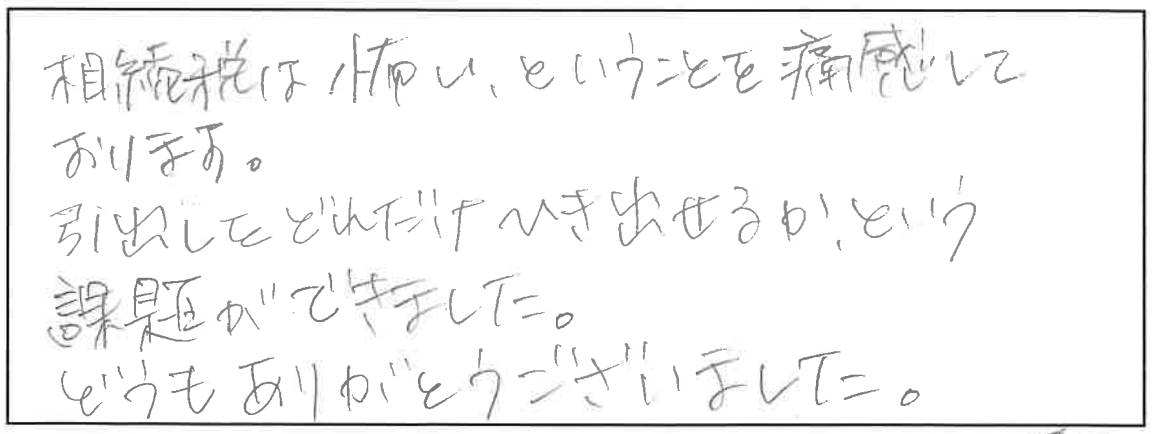 相続税は怖い、ということを痛感して
おります。
引出しをどれだけひき出せるか、という
課題ができました。
どうもありがとうございました。